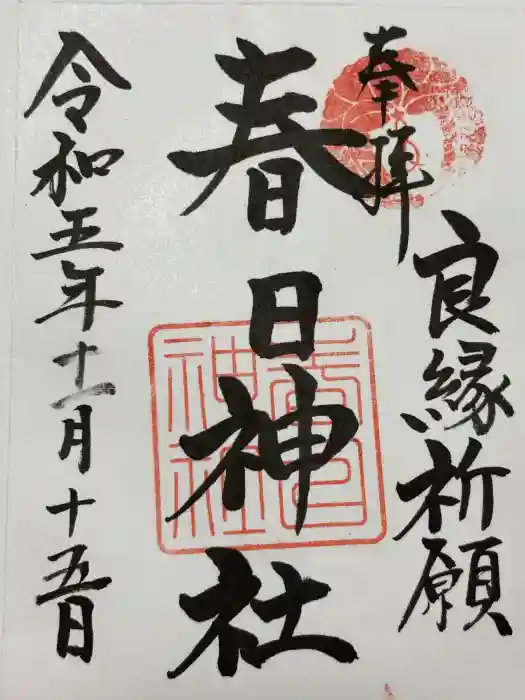 奉拝
良縁祈願
春日神社
春日神社
令和五年十一月十五日